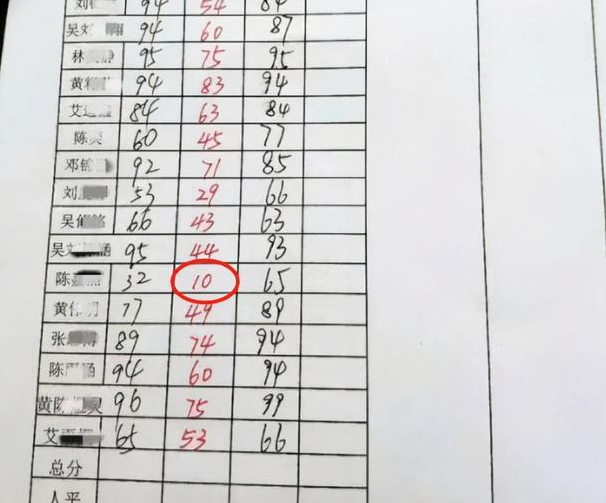 刘 94 54 84
吴刘 94 60 87
林 静 95 75 95
黄 94 83 94
艾 84 63 84
陈 60 45 77
邓 92 71 85
刘 53 29 66
吴 铭 66 43 63
吴 涵 95 44 93
陈 32 10 65
黄伟明 77 49 89
张 博 89 74 94
陈 涵 94 60 94
黄陈 灵 96 75 99
艾 65 53 66
总分
人平